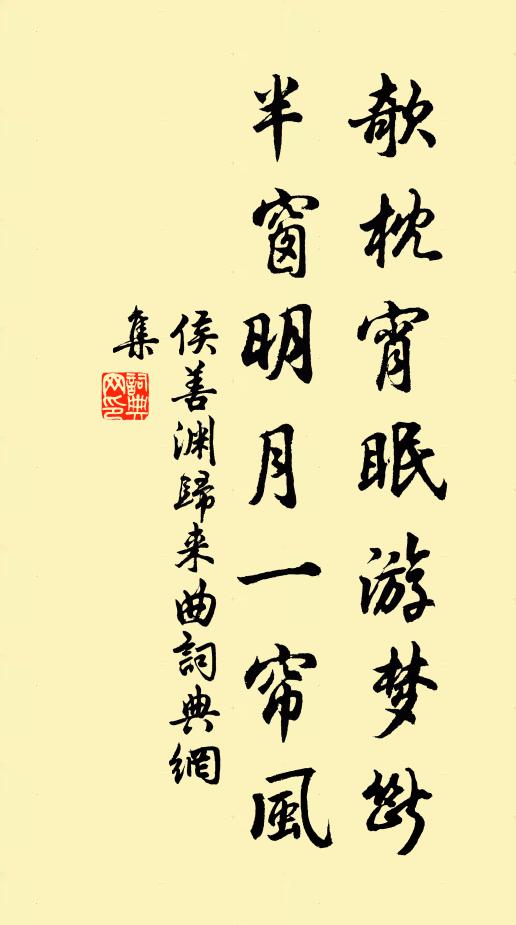 欹枕宵眠游梦断
半窗明月一帘風
侯善渊歸来曲詞典網
集
詞典
网印